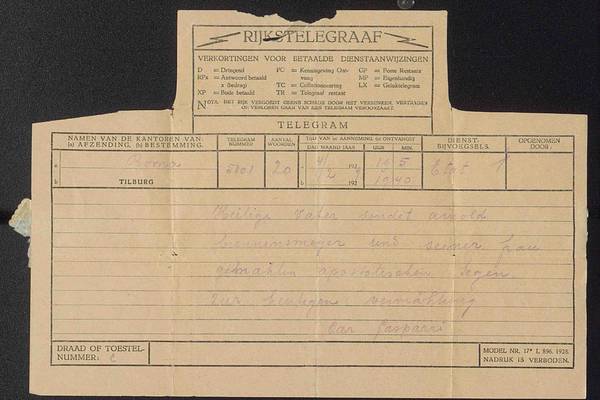 RIJKSTELEGRAAF
VERKORTINGEN VOOR BETAALDE DIENSTAANWIJZINGEN
D = Dringend
RPx = Antwoord betaald x bedrag)
XP = Bode betaald
PC = Kennisgeving Ontvang
TC = Collationneering
TR = Telegraaf restant
GP = Poste Restante
MP = Eigenhandig
LX = Gelukstelegram
NOTA. HET RIJK VERGOEDT GEENE SCHADE DOOR HET VERMINKEN, VERTRAGEN OF VERLOREN GAAN VAN EEN TELEGRAM VEROORZAAKT.
TELEGRAM
NAMEN VAN DE KANTOREN VAN: (a) AFZENDING. (b) BESTEMMING.
TELEGRAM NUMMER
AANTAL WOORDEN
TIJD VAN (a) AANNEMING. (b) ONTVANGST
DAG MAAND JAAR
UUR MIN.
DIENST- BIJVOEGSELS.
OPGENOMEN DOOR:
a Roma 20 a 192 Etat
b TILBURG b 192 10 40
Heilige Vater sendet arnold
und seiner frau
gemahlin apostolischen segen
zur heutigen vermählung
Car Gasparri
DRAAD OF TOESTEL- NUMMER:
MODEL NR. 17* L 896. 1928.
NADRUK IS VERBODEN.